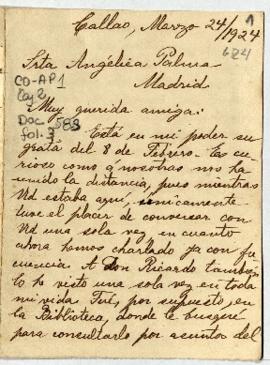 Callao, Marzo 24/1924
1
674
Srta Angélica Palma
Madrid
CO-AP1
Caj 2
Doc 583
fol. 3
Muy querida amiga:
Está en mi poder su
grata del 8 de Febrero. Es cu-
rioso como á nosotras nos ha
unido la distancia, pues mientras
Ud estaba aquí, únicamente
tuve el placer de conversar con
Ud una sola vez, en cuanto
ahora hemos charlado ya con fre
cuencia. A Don Ricardo también
lo he visto una sola vez en toda
mi vida. Fué, por supuesto, en
la Biblioteca, donde le busqué
para consultarlo por asuntos del